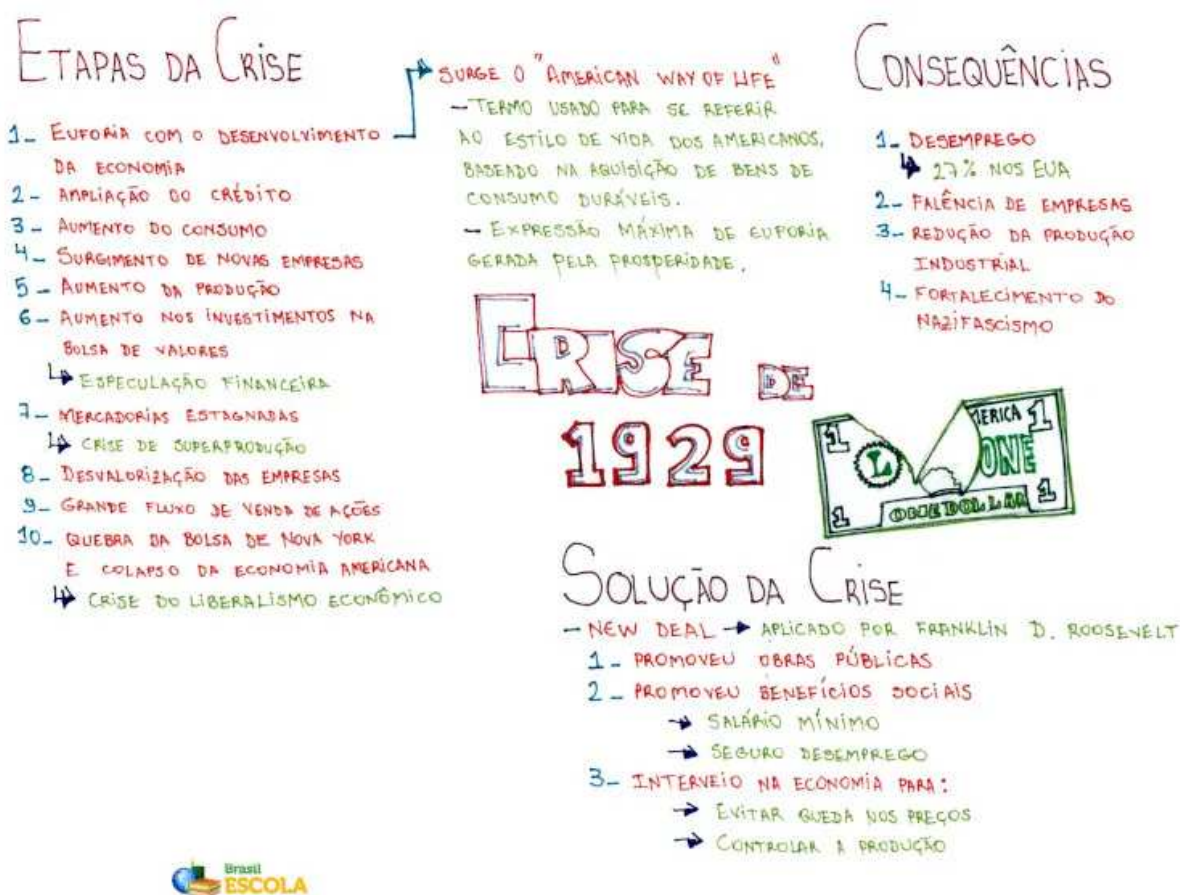 ETAPAS DA CRISE
1_ EUFORIA COM O DESENVOLVIMENTO
DA ECONOMIA
2_ AMPLIAÇÃO DO CRÉDITO
3_ AUMENTO DO CONSUMO
4_ SURGIMENTO DE NOVAS EMPRESAS
5_ AUMENTO DA PRODUÇÃO
6_ AUMENTO NOS INVESTIMENTOS NA
BOLSA DE VALORES
↳ ESPECULAÇÃO FINANCEIRA
7_ MERCADORIAS ESTAGNADAS
↳ CRISE DE SUPERPRODUÇÃO
8_ DESVALORIZAÇÃO DAS EMPRESAS
9_ GRANDE FLUXO DE VENDA DE AÇÕES
10_ QUEBRA DA BOLSA DE NOVA YORK
E COLAPSO DA ECONOMIA AMERICANA
↳ CRISE DO LIBERALISMO ECONÔMICO
SURGE O "AMERICAN WAY OF LIFE"
- TERMO USADO PARA SE REFERIR
AO ESTILO DE VIDA DOS AMERICANOS,
BASEADO NA AQUISIÇÃO DE BENS DE
CONSUMO DURÁVEIS.
- EXPRESSÃO MÁXIMA DE EUFORIA
GERADA PELA PROSPERIDADE.
CONSEQUÊNCIAS
1_ DESEMPREGO
↳ 27% NOS EUA
2_ FALÊNCIA DE EMPRESAS
3_ REDUÇÃO DA PRODUÇÃO
INDUSTRIAL
4_ FORTALECIMENTO DO
NAZIFASCISMO
CRISE DE
1929
1 MERICA 1
L ONE
1 ONE DOLLAR 1
SOLUÇÃO DA CRISE
- NEW DEAL → APLICADO POR FRANKLIN D. ROOSEVELT
1_ PROMOVEU OBRAS PÚBLICAS
2_ PROMOVEU BENEFÍCIOS SOCIAIS
→ SALÁRIO MÍNIMO
→ SEGURO DESEMPREGO
3_ INTERVEIO NA ECONOMIA PARA:
→ EVITAR QUEDA NOS PREÇOS
→ CONTROLAR A PRODUÇÃO
Brasil
ESCOLA